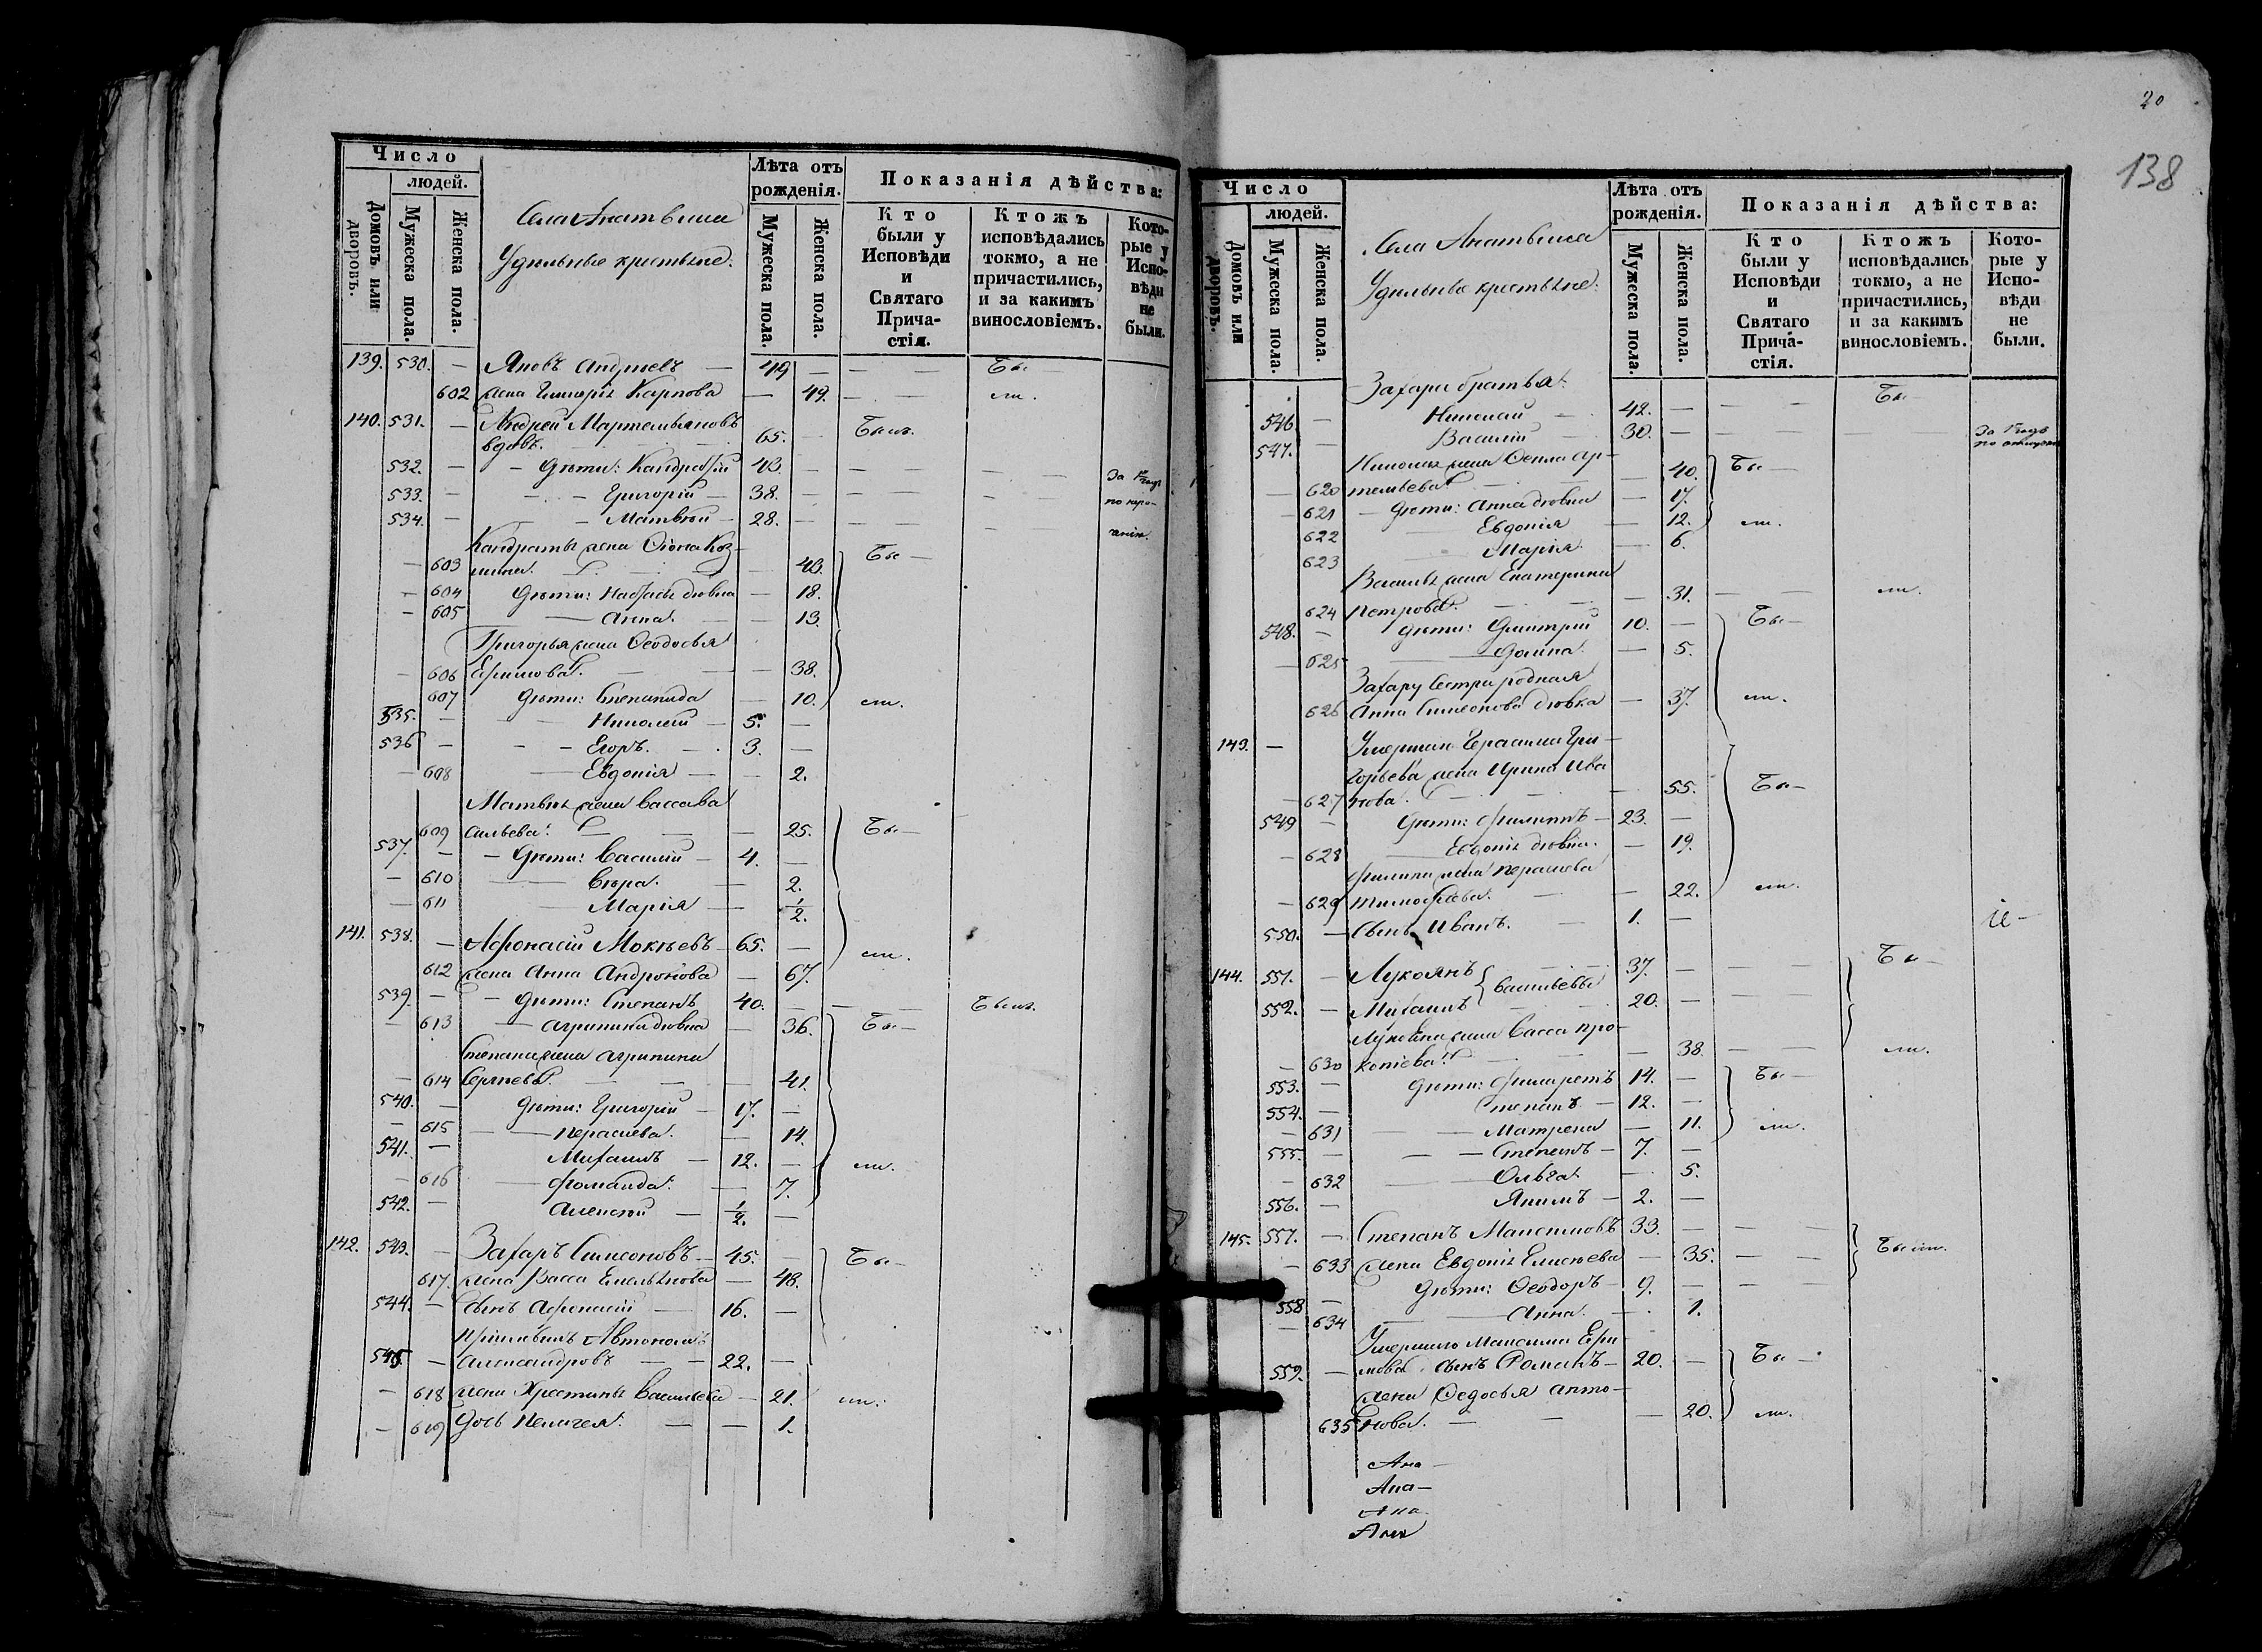 Число
людей.
Домовъ или дворовъ.
Мужеска пола.
Женска пола.
Удѣльные крестьяне.
Лѣта отъ рожденія.
Мужеска пола.
Женска пола.
Показанія дѣйства:
Кто были у Исповѣди и Святаго Причастія.
Ктожъ исповѣдались токмо, а не причастились, и за какимъ винословіемъ.
Которые у Исповѣди не были.
139. 530. — Яковъ Андреевъ — 49 — — — Бы
602 жена Гликерія Карпова — 49. — — ли.
140. 531. — Андрей Мартемьяновъ
вдовъ. 65. — Былъ.
532. — — Дѣти: Кандратій 43. — — — —
533. — — — Григорій — 38. — — — —
534. — — Матвѣй — 28. — — — —
За 1й годъ
Кандратья жена
— 603 — 43. Бы —
— 604 Дѣти: дѣвка — 18.
— 605 — Анна. — — 13.
Григорья жена Ѳеодосья
— 606 Ефимова. — — — 38.
607 Дѣти: Степанида — 10. ли.
535. — — Николай — 5. —
536 — — — Егоръ. — 3. —
— 608 — Евдокія — — 2.
Матвѣя жена Васса Ва
609 сильева. — — — 25. Бы —
537. — — Дѣти: Василій — 4. —
— 610 — — Вѣра. — 2.
— 611 — Марія — — 1/2.
141. 538. — Афонасій Мокѣевъ — 65. — ли.
612 жена Анна Андронова — 67.
539. — — Дѣти: Степанъ 40. — — — Былъ.
— 613 — Агрипина дѣвка — 36. Бы —
Степана жена Агрипина
— 614 Сергѣева. — — — 41.
540. — Дѣти: Григорій — 17. —
— 615 — — Парасковья. — 14.
541. — Михаилъ — 12. — ли.
— 616 — — 7.
542. — Алексѣй — 1/2. —
142. 543. — Захаръ Симеоновъ — 45. — Бы —
617. жена Васса Емельянова — 48.
544. — сынъ Афонасій — 16. —
Автономъ
545. — Александровъ — — 22. —
— 618 жена Христинья Васильева — 21. ли.
— 619 дочь Пелагея. — — 1.
20
138
Число
людей.
Домовъ или дворовъ.
Мужеска пола.
Женска пола.
Удѣльные крестьяне.
Лѣта отъ рожденія.
Мужеска пола.
Женска пола.
Показанія дѣйства:
Кто были у Исповѣди и Святаго Причастія.
Ктожъ исповѣдались токмо, а не причастились, и за какимъ винословіемъ.
Которые у Исповѣди не были.
Захара братья:
546 — Николай — 42. — — — Бы —
547. — Василій — 30. — — — —
За 1й годъ
Николая жена Ар-
— 620 темьева — 40. Бы —
— 621 — Дѣти: Анна дѣвка — 17.
622 — Евдокія — 12. ли.
623 — Марія — 6.
Василья жена Екатерина
624 Петрова. — — — 31. — — ли.
548. — Дѣти: Дмитрій 10. — Бы —
— 625 — Домна. — 5.
Захару сестра родная
626 Анна Симеонова дѣвка — 37. ли.
143. — Умершаго Герасима Гри-
горьева жена Ирина Ива
— 627 нова. — — — — 55. Бы —
549 — Дѣти: Филиппъ — 23. —
— 628 — Евдокія дѣвка. — 19.
Филиппа жена Парасковья
— 629 Тимофѣева. — — 22. ли.
550. — сынъ Иванъ. — 1. —
144. 551. — Лукоянъ — — 37. — — — Бы —
Васильевы
552. — Михаилъ — 20. — — —
Лукояна жена Васса Про-
— 630 копіева. — — — 38. — — ли.
553. — Дѣти: Филаретъ 14. — Бы —
554. — Степанъ — 12. —
— 631 — — Матрена — 11. ли.
555. — — — Степанъ — 7. —
— 632 — Ольга. — 5.
556. — Якимъ — 2. —
145. 557. — Степанъ Максимовъ 33. — — —
— 633 жена Евдокія Елисѣева — 35. — — Были.
558 — Дѣти: Ѳеодоръ — 9. — — —
— 634 — Анна. — 1.
Умершаго Максима Ефи-
559. — мова сынъ Романъ — 20. — Бы —
жена Ѳедосья Анто-
635 нова. — — — 20. ли.
Ана —
Ана —
Ана
Ана